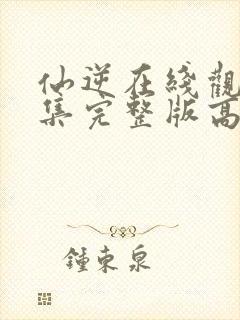 仙逆在綫觀
集完整版高
鍾東泉